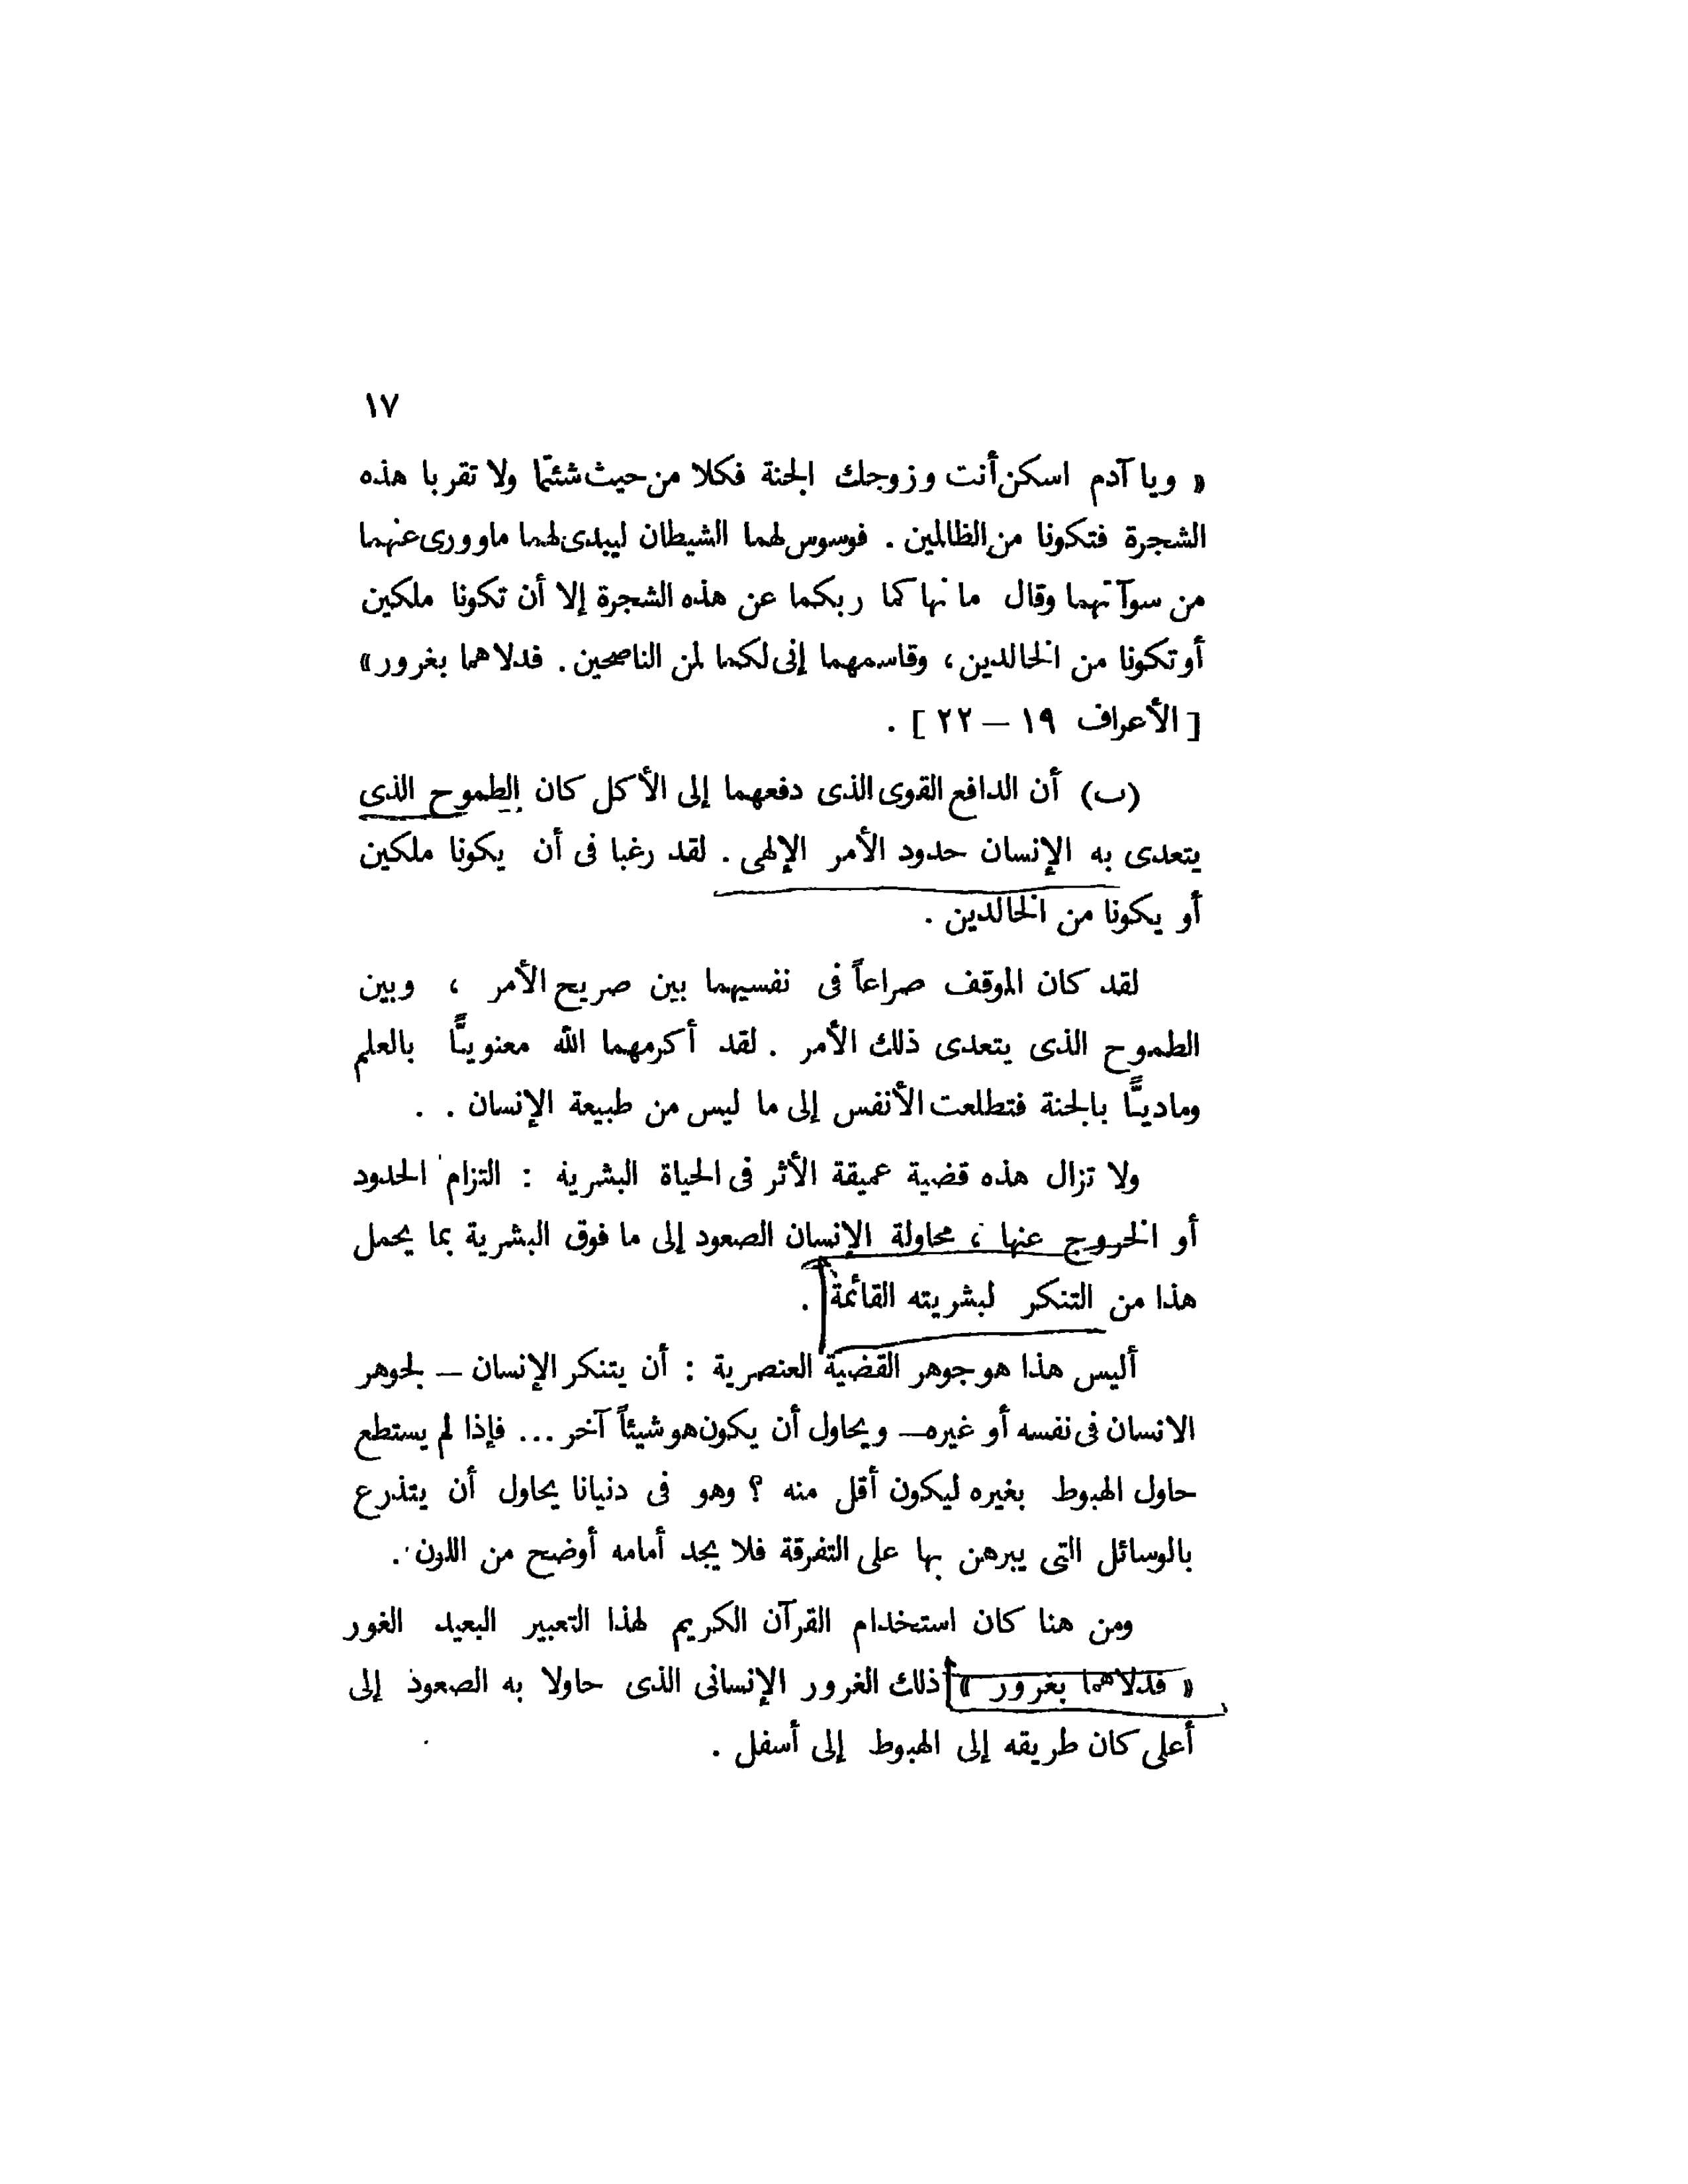 ١٧
« ويا آدم اسكن أنت وزوجك الجنة فكلا من حيث شئتما ولا تقربا هذه
الشجرة فتكونا من الظالمين . فوسوس لهما الشيطان ليبدى لهما ماوورى عنهما
من سوآتهما وقال ما نهاكما ربكما عن هذه الشجرة إلا أن تكونا ملكين
أو تكونا من الخالدين ، وقاسمهما إنى لكما لمن الناصحين . فدلاهما بغرور »
[ الأعراف ١٩ — ٢٢ ] .
(ب) أن الدافع القوى الذى دفعهما إلى الأكل كان الطموح الذى
يتعدى به الإنسان حدود الأمر الإلهى . لقد رغبا فى أن يكونا ملكين
أو يكونا من الخالدين .
لقد كان الموقف صراعاً فى نفسيهما بين صريح الأمر ، وبين
الطموح الذى يتعدى ذلك الأمر . لقد أكرمهما الله معنويًّا بالعلم
وماديًّا بالجنة فتطلعت الأنفس إلى ما ليس من طبيعة الإنسان . .
ولا تزال هذه قضية عميقة الأثر فى الحياة البشرية : التزام الحدود
أو الخروج عنها ، محاولة الإنسان الصعود إلى ما فوق البشرية بما يحمل
هذا من التنكر لبشريته القائمة .
أليس هذا هو جوهر القضية العنصرية : أن يتنكر الإنسان — لجوهر
الانسان فى نفسه أو غيره — ويحاول أن يكون هو شيئاً آخر ... فإذا لم يستطع
حاول الهبوط بغيره ليكون أقل منه ؟ وهو فى دنيانا يحاول أن يتذرع
بالوسائل التى يبرهن بها على التفرقة فلا يجد أمامه أوضح من اللون .
ومن هنا كان استخدام القرآن الكريم لهذا التعبير البعيد الغور
« فدلاهما بغرور » ذلك الغرور الإنسانى الذى حاولا به الصعود إلى
أعلى كان طريقه إلى الهبوط إلى أسفل .